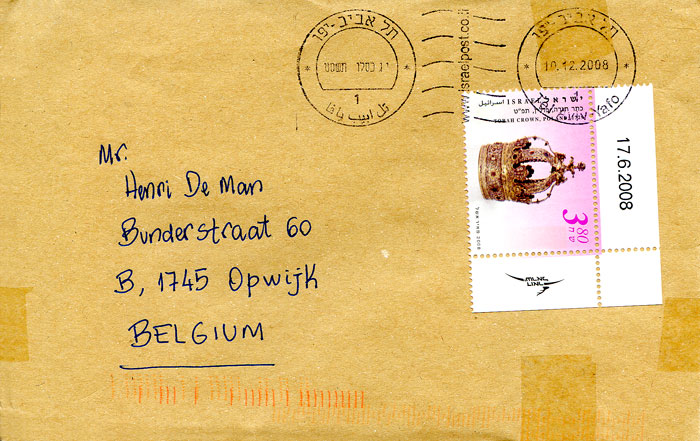 תל אביב-יפו
י ג כסלו תשסט
1
تل ابيب يافا
www.israelpost.co.il
תל אביב-יפו
10.12.2008
Tel Aviv-Yafo
ישראל ISRAEL اسرائيل
TORAH CROWN, POLAND
3.80
17.6.2008
Mr.
Henri De Man
Bunderstraat 60
B, 1745 Opwijk
BELGIUM